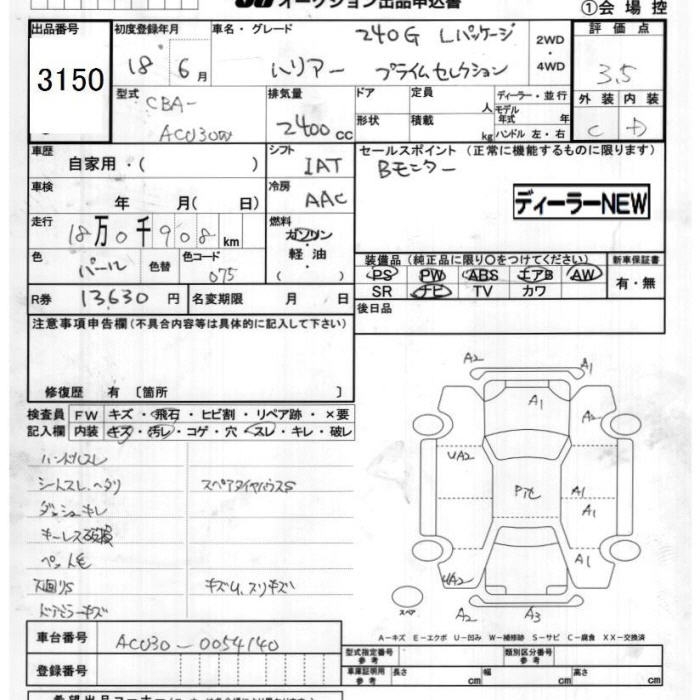 オークション出品申込書
①会場控
出品番号
3150
初度登録年月
18 6月
車名・グレード
240G Lパッケージ
ハリアー プライムセレクション
2WD
4WD
評価点
3.5
外装 内装
C D
型式
CBA-
ACU30W
排気量
2400cc
ドア
形状
定員 人
積載 kg
ディーラー・並行
モデル年式 年
ハンドル 左・右
車歴
自家用・( )
シフト
IAT
セールスポイント (正常に機能するものに限ります)
Bモニター
ディーラーNEW
車検
年 月( 日)
冷房
AAC
走行
18万0千908km
燃料
ガソリン
軽油
( )
色
パール
色替
色コード
075
装備品 (純正品に限り○をつけてください)
PS PW ABS エアB AW
SR ナビ TV カワ
新車保証書
有・無
R券 13,630円
名変期限 月 日
後日品
注意事項申告欄(不具合内容等は具体的に記入して下さい)
修復歴 有〔箇所 〕
検査員記入欄
FW キズ・飛石・ヒビ割・リペア跡・×要
内装 キズ・汚レ・コゲ・穴・スレ・キレ・破レ
ハンドルスレ
シートスレ、ヘタリ
スペアタイヤハウスS
ダッシュキレ
キーレス破損
ペット毛
下回りS
キズU、スリキズ
ドアミラーキズ
A2 A1
A1
A2
UA2
Pit
A1
A1
A1
UA2
A2 A3
スペア
A－キズ E－エクボ U－凹み W－補修跡 S－サビ C－腐食 XX－交換済
車台番号
ACU30-0054140
登録番号
型式指定番号
参考
類別区分番号
参考
車庫証明用
参考
長さ cm 幅 cm 高さ cm